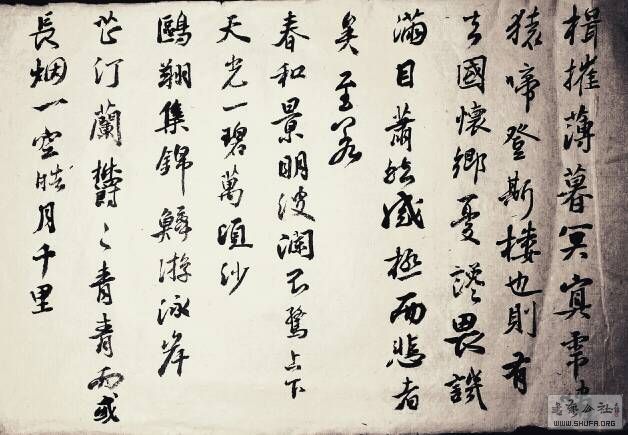 楫摧薄暮冥冥虎
猿啼登斯樓也則有
去國懷鄉憂讒畏譏
滿目蕭然感極而悲者
矣至若
春和景明波瀾不驚上下
天光一碧萬頃沙
鷗翔集錦鱗游泳岸
芷汀蘭欝々青青而或
長烟一空皓月千里
公社
WWW.SHUFA.ORG